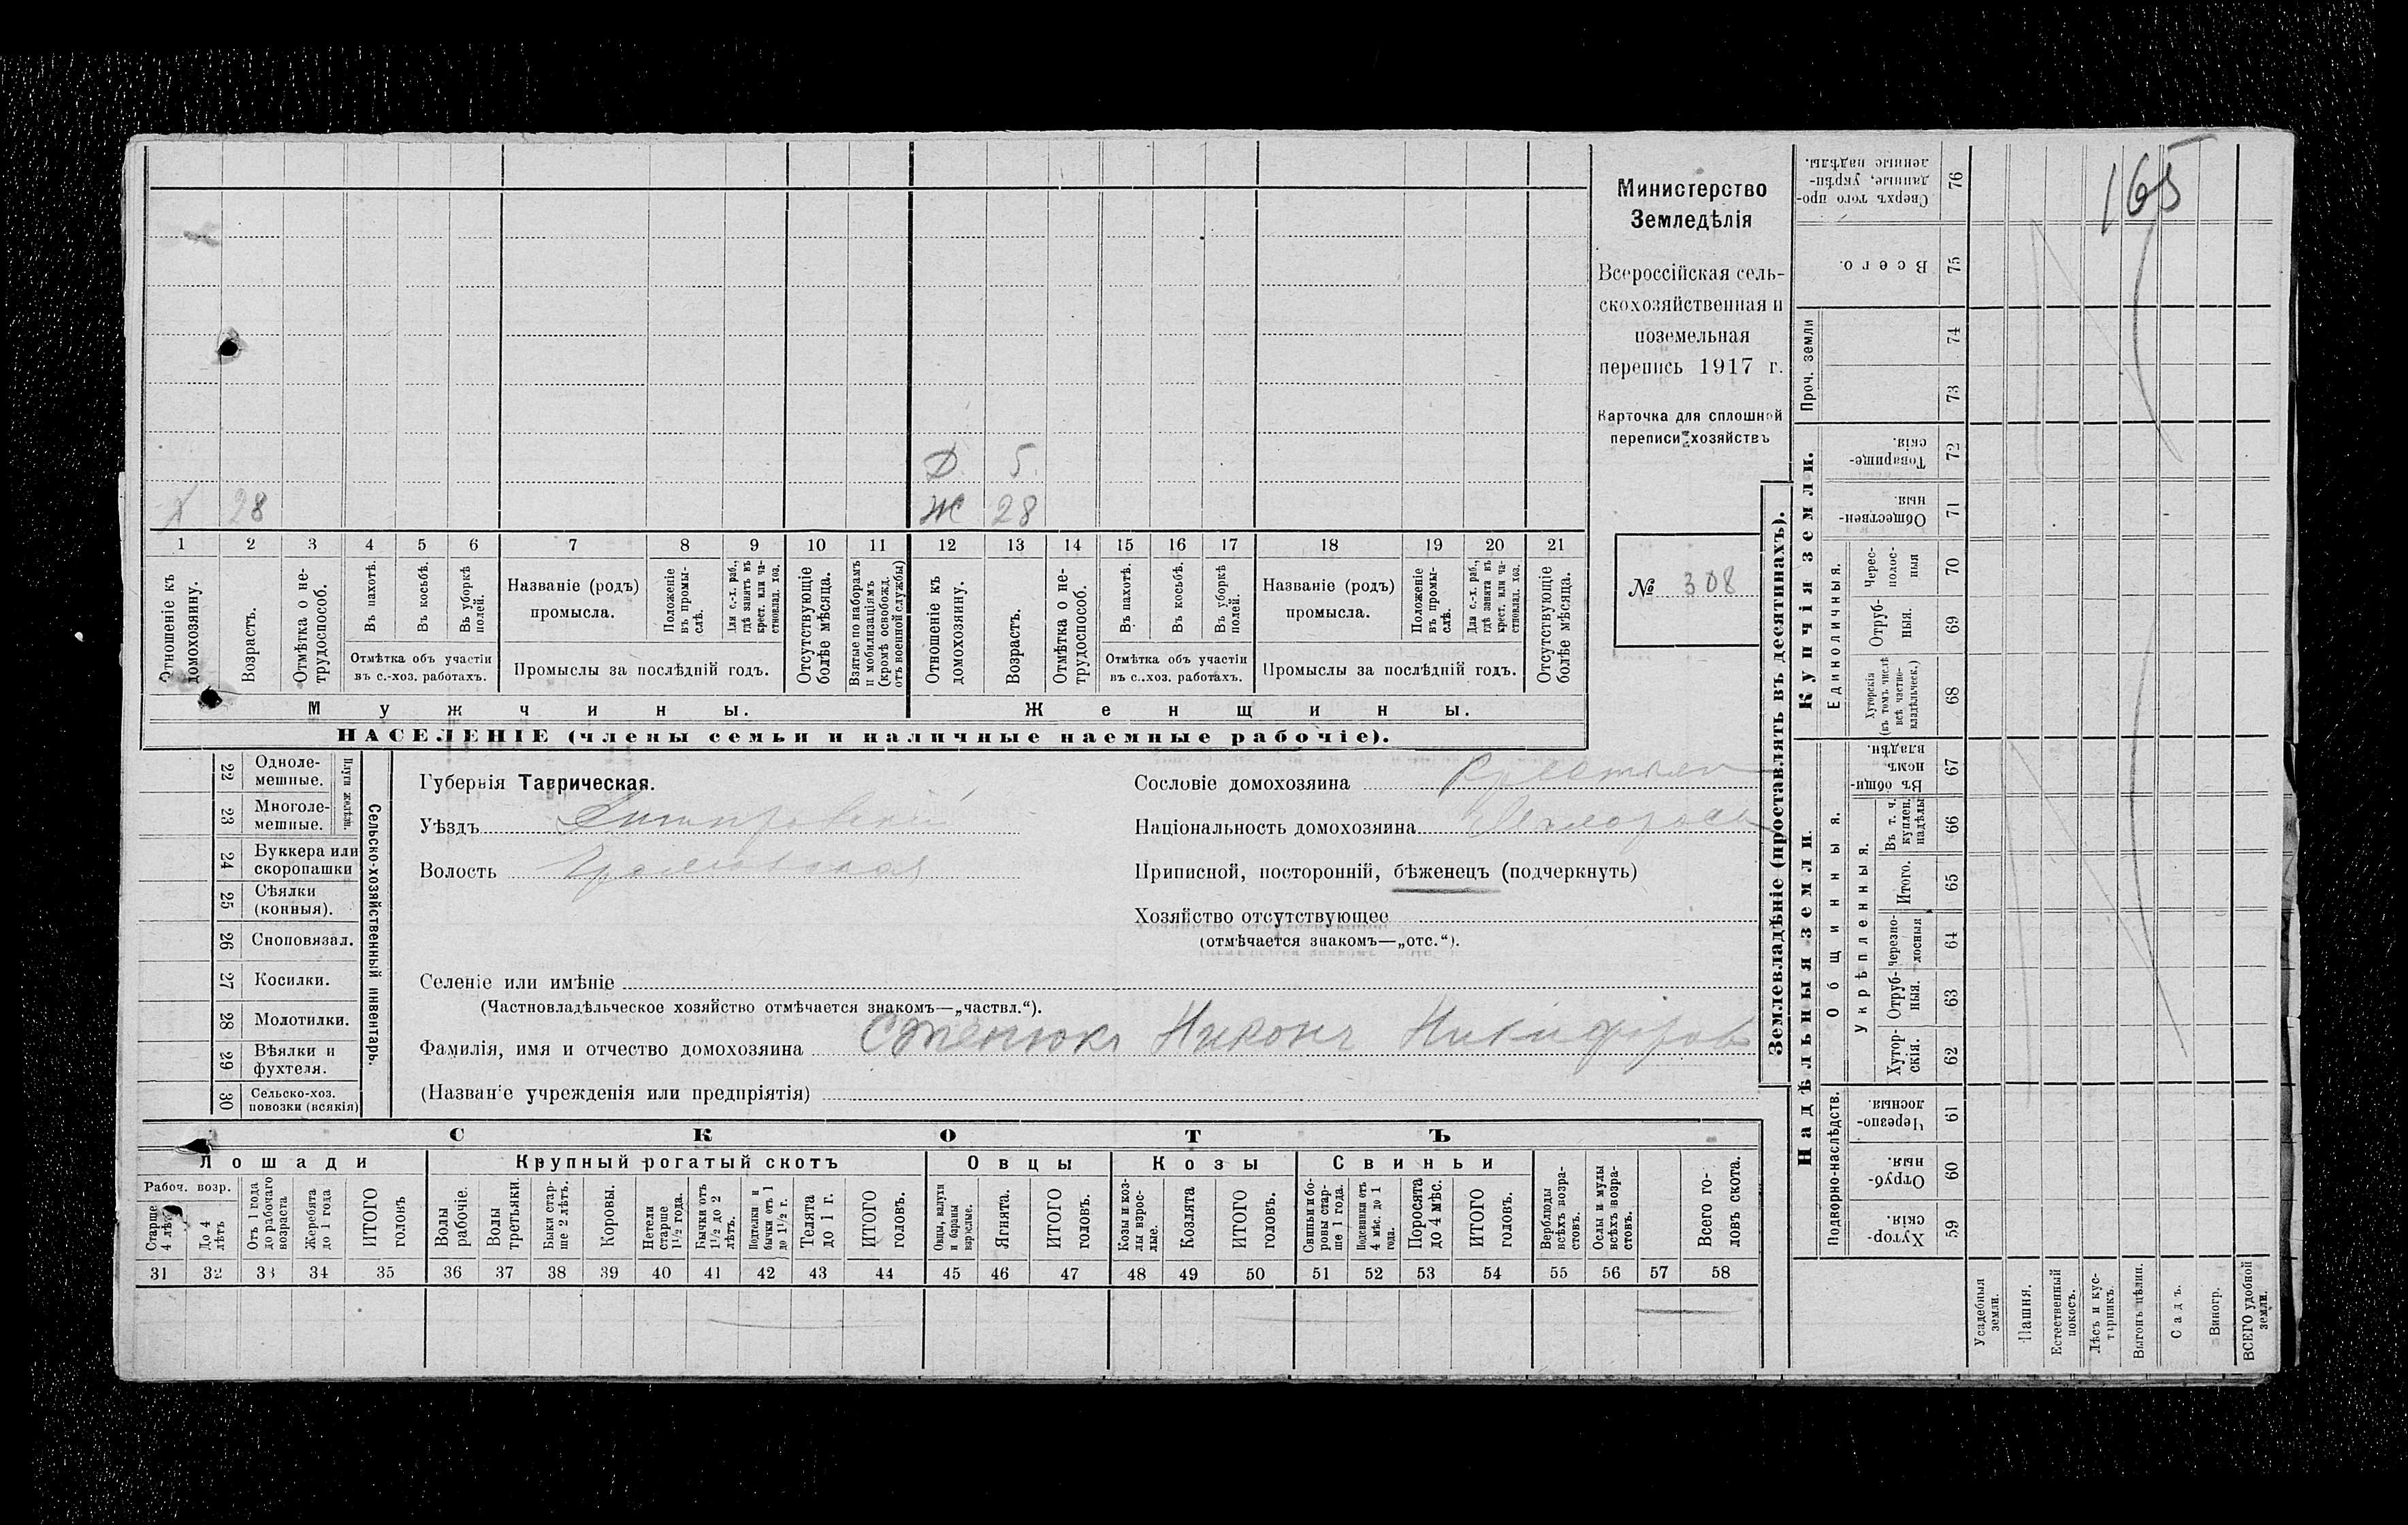 165
Министерство
Земледѣлія
Всероссійская сель-
скохозяйственная и
поземельная
перепись 1917 г.
Карточка для сплошной
переписи хозяйствъ
№ 308
Д 5
Х 28
Ж 28
1 2 3 4 5 6 7 8 9 10 11 12 13 14 15 16 17 18 19 20 21
Отношеніе къ домохозяину.
Возрастъ.
Отмѣтка о не-трудоспособ.
Въ пахотѣ.
Въ косьбѣ.
Въ уборкѣ полей.
Отмѣтка объ участіи
въ с.-хоз. работахъ.
Названіе (родъ)
промысла.
Положеніе въ промы-слѣ.
Для с.-х. раб., гдѣ занятъ въ крест. или ча-стновлад. хоз.
Промыслы за послѣдній годъ.
Отсутствующіе болѣе мѣсяца.
Взятые по наборамъ и мобилизаціямъ (кромѣ освобожд. отъ военной службы)
Отношеніе къ домохозяину.
Возрастъ.
Отмѣтка о не-трудоспособ.
Въ пахотѣ.
Въ косьбѣ.
Въ уборкѣ полей.
Отмѣтка объ участіи
въ с..хоз. работахъ.
Названіе (родъ)
промысла.
Положеніе въ промы-слѣ.
Для с.-х. раб., гдѣ занята въ крест. или ча-стновлад. хоз.
Промыслы за послѣдній годъ.
Отсутствующіе болѣе мѣсяца.
Мужчины.
Женщины.
НАСЕЛЕНІЕ (члены семьи и наличные наемные рабочіе).
22 Одноле-мешные.
23 Многоле-мешные.
Плуги желѣзн.
24 Буккера или скоропашки
25 Сѣялки (конныя).
26 Сноповязал.
27 Косилки.
28 Молотилки.
29 Вѣялки и фухтеля.
30 Сельско-хоз. повозки (всякія)
Сельско-хозяйственный инвентарь.
Губернія Таврическая.
Уѣздъ Днѣпровскій
Волость
Селеніе или имѣніе
(Частновладѣльческое хозяйство отмѣчается знакомъ—„частвл.“).
Фамилія, имя и отчество домохозяина Стенюкъ Никонъ Никифоров
(Названіе учрежденія или предпріятія)
Сословіе домохозяина
Національность домохозяина
Приписной, посторонній, бѣженецъ (подчеркнуть)
Хозяйство отсутствующее
(отмѣчается знакомъ—„отс.“).
СКОТЪ
Лошади
Крупный рогатый скотъ
Овцы
Козы
Свиньи
Рабоч. возр.
Старше 4 лѣтъ
До 4 лѣтъ
Отъ 1 года до рабочаго возраста
Жеребята до 1 года
ИТОГО головъ
Волы рабочіе.
Волы третьяки.
Быки стар-ше 2 лѣтъ.
Коровы.
Нетели старше 1½ года.
Бычки отъ 1½ до 2 лѣтъ.
Подтелки и бычки отъ 1 до 1½ г.
Телята до 1 г.
ИТОГО головъ.
Овцы, валухи и бараны взрослые.
Ягнята.
ИТОГО головъ.
Козы и коз-лы взрос-лые.
Козлята
ИТОГО головъ.
Свиньи и бо-ровы стар-ше 1 года.
Подсвинки отъ 4 мѣс. до 1 года.
Поросята до 4 мѣс.
ИТОГО головъ.
Верблюды всѣхъ возра-стовъ.
Ослы и мулы всѣхъ возра-стовъ.
Всего го-ловъ скота.
31 32 33 34 35 36 37 38 39 40 41 42 43 44 45 46 47 48 49 50 51 52 53 54 55 56 57 58
Землевладѣніе (проставлять въ десятинахъ).
Купчія земли.
Надѣльныя земли.
Проч. земли
Сверхъ того про-данные, укрѣп-ленные надѣлы. 76
Всего. 75
74
73
Товарище-скія. 72
Обществен-ныя. 71
Единоличныя.
Черес-полос-ныя 70
Отруб-ныя. 69
Хуторскія (въ томъ числѣ всѣ частно-владѣльческ.) 68
Общинныя.
Въ общи-номъ владѣн. 67
Укрѣпленныя.
Въ т. ч. куплен. надѣлы 66
Итого. 65
Черезпо-лосныя 64
Отруб-ныя. 63
Хутор-скія. 62
Подворно-наслѣдств.
Черезпо-лосныя. 61
Отруб-ныя. 60
Хутор-скія. 59
Усадебныя земли.
Пашня.
Естественный покосъ.
Лѣсъ и кус-тарникъ.
Выгонъ цѣлин.
Садъ.
Виногр.
ВСЕГО удобной земли.